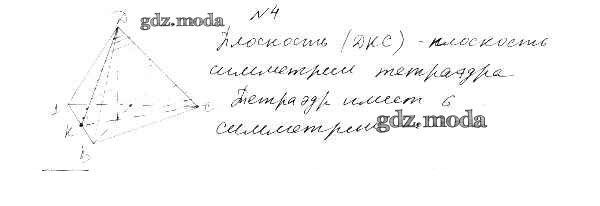 №4
gdz.moda
Плоскость (DKC) - плоскость
симметрии тетраэдра
Тетраэдр имеет 6
симметрии
gdz.moda
K
B
C